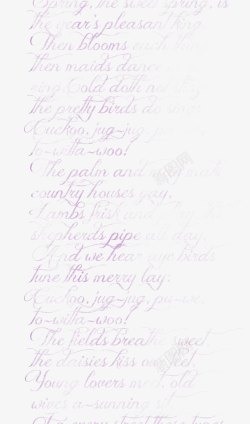 Spring, the sweet spring, is
the year's pleasant king.
Then blooms each
then maids dance
Cold doth not
the pretty birds do sing.
Cuckoo, jug-jug,
to-witta-woo!
The palm and make
country houses gay,
Lambs frisk and play, the
shepherds pipe all day,
And we hear aye birds
tune this merry lay:
Cuckoo, jug-jug, pu-we,
to-witta-woo!
The fields breathe sweet
the daisies kiss our feet,
Young lovers meet, old
wives a-sunning sit